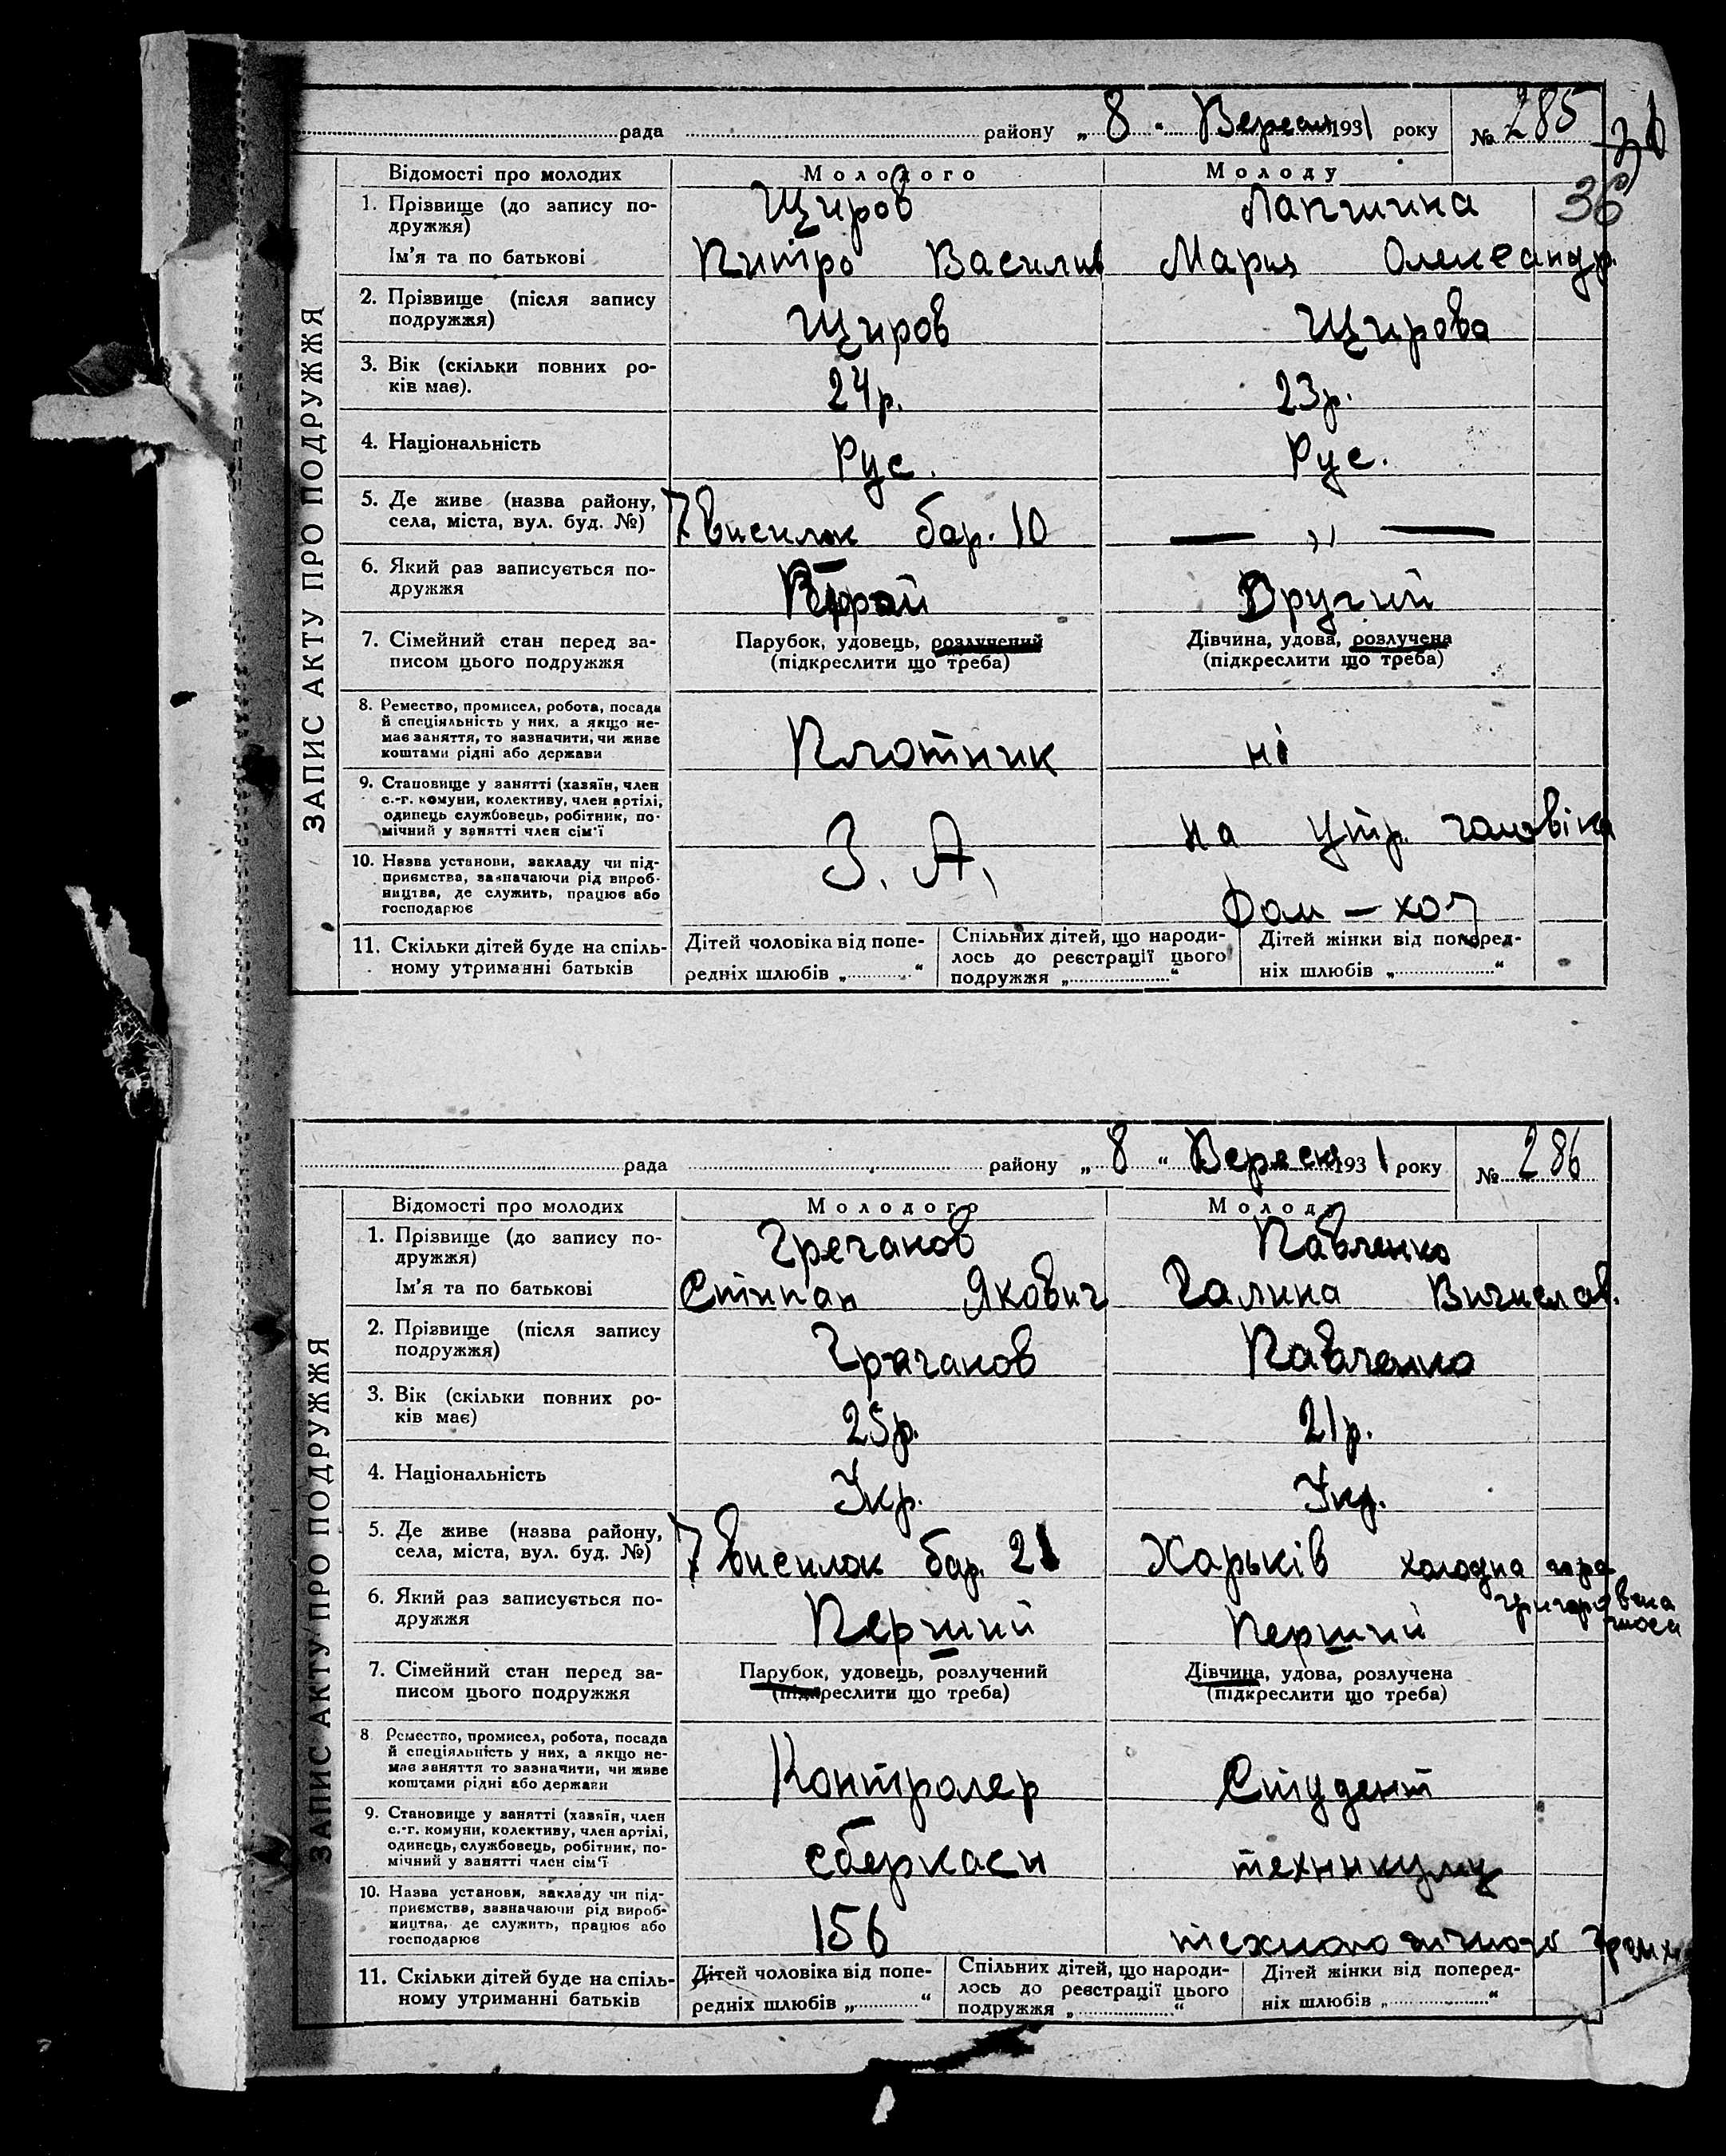 рада района „ 8 “ Вересня 1931 року № 285
36
ЗАПИС АКТУ ПРО ПОДРУЖЖЯ
Відомості про молодих Молодого Молоду
1. Прізвище (до запису по-
дружжя) Щиров Лапшина
Ім'я та по батькові Питро Василив Мария Олександр.
2. Прізвище (після запису
подружжя) Щиров Щирова
3. Вік (скільки повних ро-
ків має). 24р. 23р.
4. Національність Рус. Рус.
5. Де живе (назва району,
села, міста, вул. буд. №) 7 висилок бар. 10 — „ —
6. Який раз записується по-
дружжя Другий
7. Сімейний стан перед за-
писом цього подружжя
Парубок, удовець, розлучений
(підкреслити що треба)
Дівчина, удова, розлучена
(підкреслити що треба)
8. Ремество, промисел, робота, посада
й спеціяльність у них, а якщо не-
має заняття, то зазначити, чи живе
коштами рідні або держави
Плотник ні
9. Становище у занятті (хазяїн, член
с.-г. комуни, колективу, член артілі,
одинець службовець, робітник, по-
мічний у занятті член сім'ї
на утр. чоловіка
10. Назва установи, закладу чи під-
приємства, зазначаючи рід вироб-
ництва, де служить, працює або
господарює
З. А. Дом – хоз
11. Скільки дітей буде на спіль-
ному утриманні батьків
Дітей чоловіка від попе-
редніх шлюбів „ “
Спільних дітей, що народи-
лось до реєстрації цього
подружжя „ “
Дітей жінки від поперед-
ніх шлюбів „ “
рада району „ 8 “ Вересня 1931 року № 286
ЗАПИС АКТУ ПРО ПОДРУЖЖЯ
Відомості про молодих Молодого Молоду
1. Прізвище (до запису по-
дружжя) Гречанов Павленко
Ім'я та по батькові Стипан Якович Галина Вичислав.
2. Прізвище (після запису
подружжя) Гречанов Павленко
3. Вік (скільки повних ро-
ків має) 25р. 21р.
4. Національність Укр. Укр.
5. Де живе (назва району,
села, міста, вул. буд. №) 7 висилок бар. 21 Харьків холодна гора
6. Який раз записується по-
дружжя Перший Перший
7. Сімейний стан перед за-
писом цього подружжя
Парубок, удовець, розлучений
(підкреслити що треба)
Дівчина, удова, розлучена
(підкреслити що треба)
8 Ремество, промисел, робота, посада
й спеціяльність у них, а якщо не-
має заняття то зазначити, чи живе
коштами рідні або держави
Контролер Студент
9. Становище у занятті (хазяїн, член
с.-г. комуни, колективу, член артілі,
одинець, службовець, робітник, по-
мічний у занятті член сім'ї
сберкаси технікуму
10. Назва установи, закладу чи під-
приємства, зазначаючи рід вироб-
ництва, де служить, працює або
господарює
156 технологічного
11. Скільки дітей буде на спіль-
ному утриманні батьків
Дітей чоловіка від попе-
редніх шлюбів „ “
Спільних дітей, що народи-
лось до реєстрації цього
подружжя „ “
Дітей жінки від поперед-
ніх шлюбів „ “